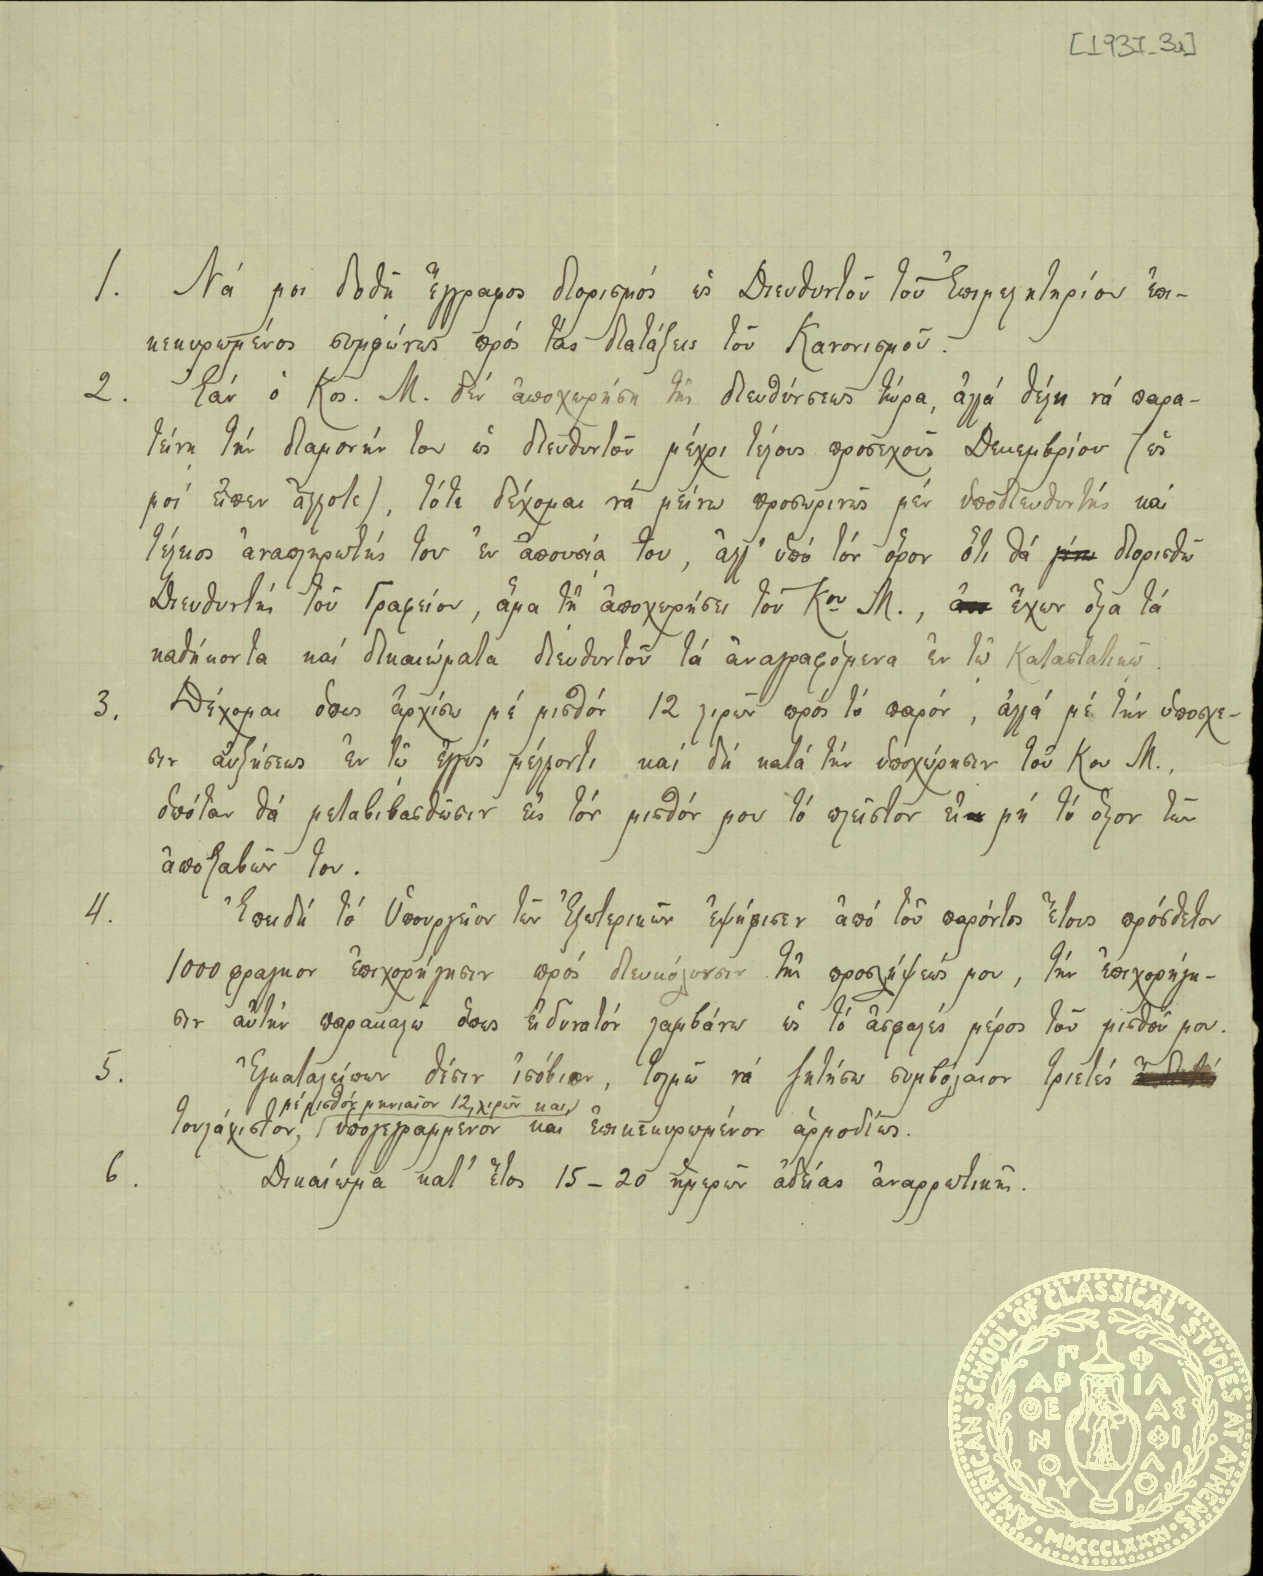 [1937-3α]
1. Νά μοι δοθῇ ἔγγραφος διορισμός ὡς Διευθυντοῦ τοῦ Ἐπιμελητηρίου ἐπι-
κεκυρωμένος συμφώνως πρός τάς διατάξεις τοῦ Κανονισμοῦ.
2. Ἐάν ὁ Κος. Μ. δέν ἀποχωρήσῃ τῆς διευθύνσεως τώρα, ἀλλά θέλῃ νά παρα-
τείνῃ τήν διαμονήν του ὡς διευθυντοῦ μέχρι τέλους προσεχοῦς Δεκεμβρίου (ὡς
μοί εἶπεν ἄλλοτε), τότε δέχομαι νά μείνω προσωρινῶς μέν ὑποδιευθυντής καί
τέλειος ἀναπληρωτής του ἐν ἀπουσίᾳ του, ἀλλ' ὑπό τόν ὅρον ὅτι θά διορισθῶ
Διευθυντής τοῦ Γραφείου, ἅμα τῇ ἀποχωρήσει τοῦ Κου Μ., ἔχων ὅλα τά
καθήκοντα καί δικαιώματα διευθυντοῦ τά ἀναγραφόμενα ἐν τῷ Καταστατικῷ.
3. Δέχομαι ὅπως ἀρχίσω μέ μισθόν 12 λιρῶν πρός τό παρόν, ἀλλά μέ τήν ὑποσχε-
σιν αὐξήσεως ἐν τῷ ἐγγύς μέλλοντι καί δή κατά τήν ὑποχώρησιν τοῦ Κου Μ.,
ὁπόταν θά μεταβιβασθῶσιν εἰς τόν μισθόν μου τό πλεῖστον εἰ μή τό ὅλον τῶν
ἀπολαβῶν του.
4. Ἐπειδή τό Ὑπουργεῖον τῶν Ἐξωτερικῶν ἐψήφισεν ἀπό τοῦ παρόντος ἔτους πρόσθετον
1000 φραγκον ἐπιχορήγησιν πρός διευκόλυνσιν τῆς προσλήψεώς μου, τήν ἐπιχορήγη-
σιν αὐτήν παρακαλῶ ὅπως εἰ δυνατόν λαμβάνω ὡς τό ἀσφαλές μέρος τοῦ μισθοῦ μου.
5. Ἐγκαταλείπων θέσιν ἰσόβιον, τολμῶ νά ζητήσω συμβόλαιον τριετές
μέ μισθόν μηνιαῖον 12 λιρῶν καί
τουλάχιστον, ὑπογεγραμμένον καί ἐπικεκυρωμένον ἁρμοδίως.
6. Δικαίωμα κατ' ἔτος 15-20 ἡμερῶν ἀδείας ἀναρρωτικῆς.
AMERICAN SCHOOL OF CLASSICAL STVDIES AT ATHENS
MDCCCLXXXI
ΠΑΡΘΕΝΟΥ ΦΙΛΑΣ ΦΙΛΟΙ